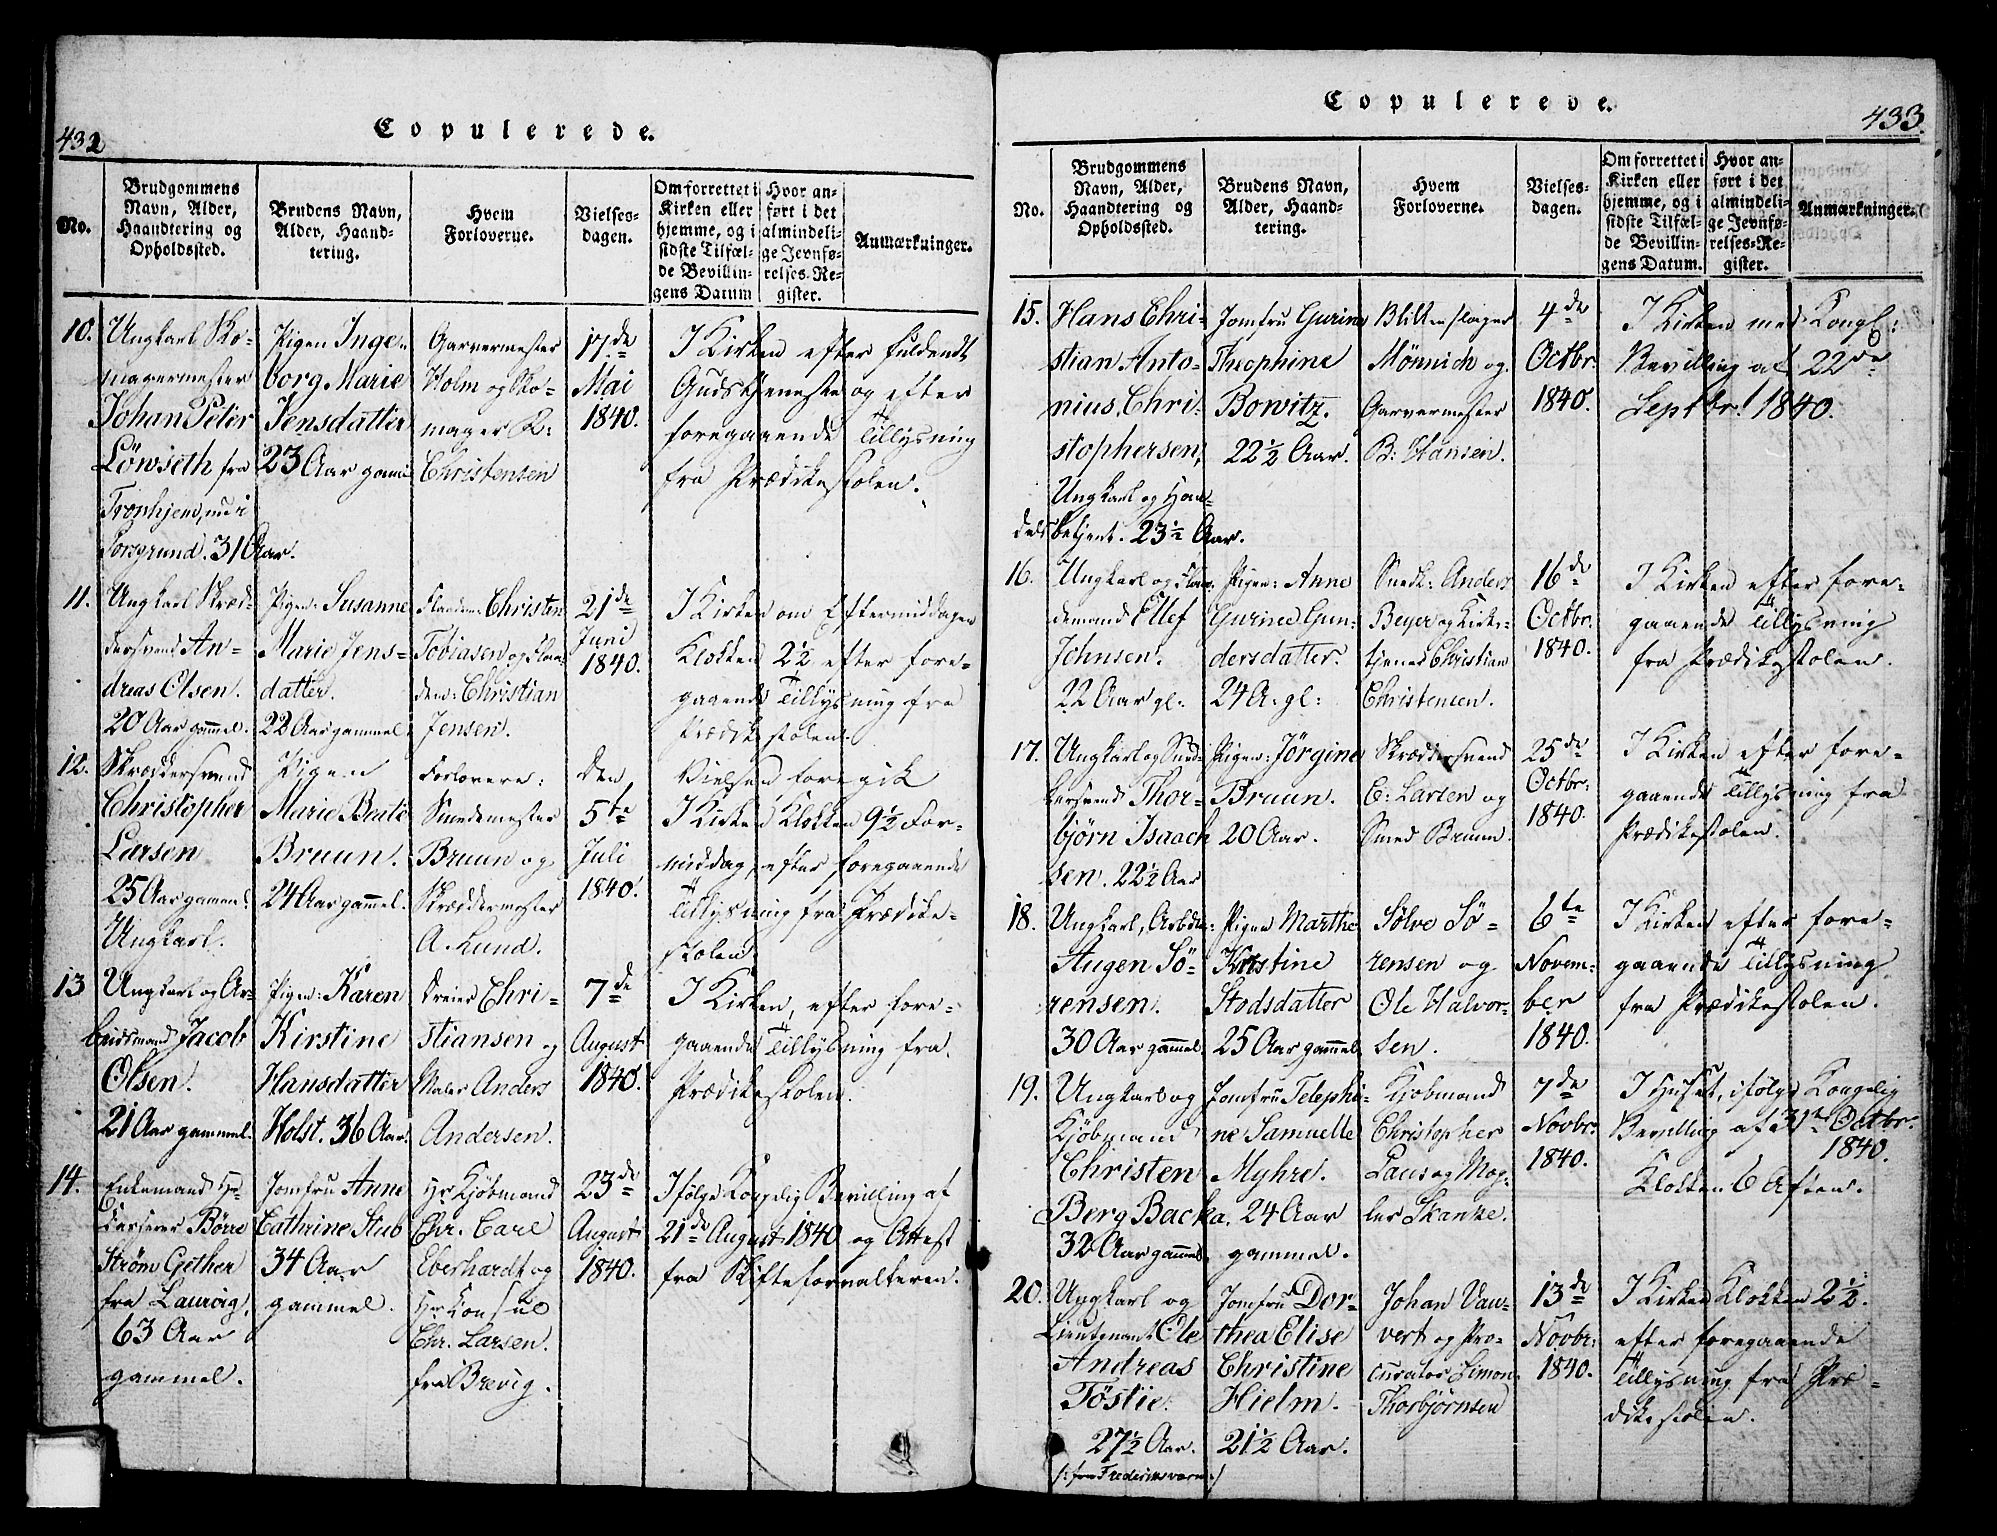 432
Copulerede.
No.
Brudgommens
Navn, Alder,
Haandtering og
Opholdssted.
Brudens Navn,
Alder, Haand-
tering.
Hvem
Forloverne.
Vielses-
dagen.
Om forrettet i
Kirken eller
hjemme, og i
sidste Tilfæl-
de Bevillin-
gens Datum
Hvor an-
ført i det
almindeli-
ge Jevnfø-
relses-Re-
gister.
Anmærkninger.
10.
Ungkarl Sko-
magermester
Johan Peter
Löwseth fra
Tronhjem, nu i
Porsgrund. 31 Aar.
Pigen Inge-
borg Marie
Jensdatter
23 Aar gamel
Garvermester
Holm og Sko-
mager R:
Christensen
17de
Mai
1840.
I Kirken efter fuldendt
Gudstjeneste og efter
foregaaende Tillysning
fra Prædikestolen.
11.
Ungkarl Skræd-
dersvend An-
dreas Olsen.
20 Aar gammel.
Pigen: Susanne
Marie Jens-
datter.
22 Aar gammel.
Christen
Tobiasen og
Christian
Jensen.
21de
Juni
1840.
I Kirken om Eftermiddagen
Klokken 2½ efter fore-
gaaende Tillysning fra
Prædikestolen.
12.
Skræddersvend
Christopher
Larsen
25 Aar gammel.
Ungkarl.
Pigen
Marie Bente
Bruun.
24 Aar gammel.
Forlovere:
Smedemester
Bruun og
Skræddermester
A. Lund.
den
5te
Juli
1840.
Vielsen foregik
I Kirken Klokken 9½ For-
middag, efter foregaaende
Tillysning fra Prædike-
stolen.
13
Ungkarl og Ar-
beidsmand Jacob
Olsen.
21 Aar gammel.
Pigen: Karen
Kirstine
Hansdatter
Holst. 36 Aar.
Dreier Chri-
stiansen og
Maler Anders
Andersen.
7de
August
1840.
I Kirken, efter fore-
gaaende Tillysning fra
Prædikestolen.
14.
Enkemand Hr
Børre
Strøm Gether
fra Laurvig,
63 Aar
gammel.
Jomfru Anne
Cathrine Stub
34 Aar
gammel.
Hr Kjöbmand
Chr. Carl
Eberhardt og
Hr Konsul
Chr. Larsen.
fra Brevig.
23de
August
1840.
Ifölge Kongelig Bevilling af
21de August 1840 og Attest
fra Skifteforvalteren.
433.
Copulerede.
No.
Brudgommens
Navn, Alder,
Haandtering og
Opholdssted.
Brudens Navn,
Alder, Haand-
tering.
Hvem
Forloverne.
Vielses-
dagen.
Om forrettet i
Kirken eller
hjemme, og i
sidste Tilfæl-
de Bevillin-
gens Datum.
Hvor an-
ført i det
almindeli-
ge Jevnfø-
relses-Re-
gister.
Anmærkninger.
15.
Hans Chri-
stian Anto-
nius Chri-
stophersen,
Ungkarl og Han-
delsbetjent. 23½ Aar.
Jomfru Gurine
Theophine
Bowitz.
22½ Aar.
Blikkenslager
Mönnich og
Garvermester
B: Hansen.
4de
Octbr.
1840.
I Kirken med Kongl:
Bevilling af 22de
Septbr. 1840.
16.
Ungkarl og
Ellef
Johnsen.
22 Aar gl.
Pigen: Anne
Gurine Gun-
dersdatter.
24 A: gl:
Smed: Anders
Beyer og Kirke-
tjener Christian
Christensen.
16de
Octbr.
1840.
I Kirken efter fore-
gaaende Tillysning
fra Prædikestolen.
17.
Ungkarl og Sned-
kersvend Thor-
björn Isaach
sen. 22½ Aar
Pigen: Jörgine
Bruun.
20 Aar.
Skræddersvend
C: Larsen og
Smed Bruun.
25de
Octbr:
1840.
I Kirken efter fore-
gaaende Tillysning fra
Prædikestolen.
18.
Ungkarl, Arbdm:
Augen Sö-
rensen.
30 Aar gammel
Pigen Marthe
Kirstine
Stodsdatter
25 Aar gammel
Sölve Sö-
rensen og
Ole Halvor-
sen.
6te
Novem-
ber
1840.
I Kirken efter fore-
gaaende Tillysning
fra Prædikestolen.
19.
Ungkarl og
Kjöbmand
Christen
Berg Backa.
32 Aar gammel.
Jomfru Telephi-
ne Samuelle
Myhre.
24 Aar
gammel.
Kjöbmand
Christopher
Laus og Mæg-
ler Skanke.
7de
Novbr.
1840.
I Huset, ifölge Kongelig
Bevilling af 31te Octbr.
1840.
Klokken 6 Aften.
20.
Ungkarl og
Lieutenant Ole
Andreas
Töstie.
27½ Aar.
/: fra Frederiksværn :/
Jomfru Dor-
thea Elise
Christine
Hielm.
21½ Aar.
Johan Vau-
vert og Pro-
curator Simon
Thorbjörnsen
13de
Novbr:
1840.
I Kirken Klokken 2½.
efter foregaaende
Tillysning fra Præ-
dikestolen.